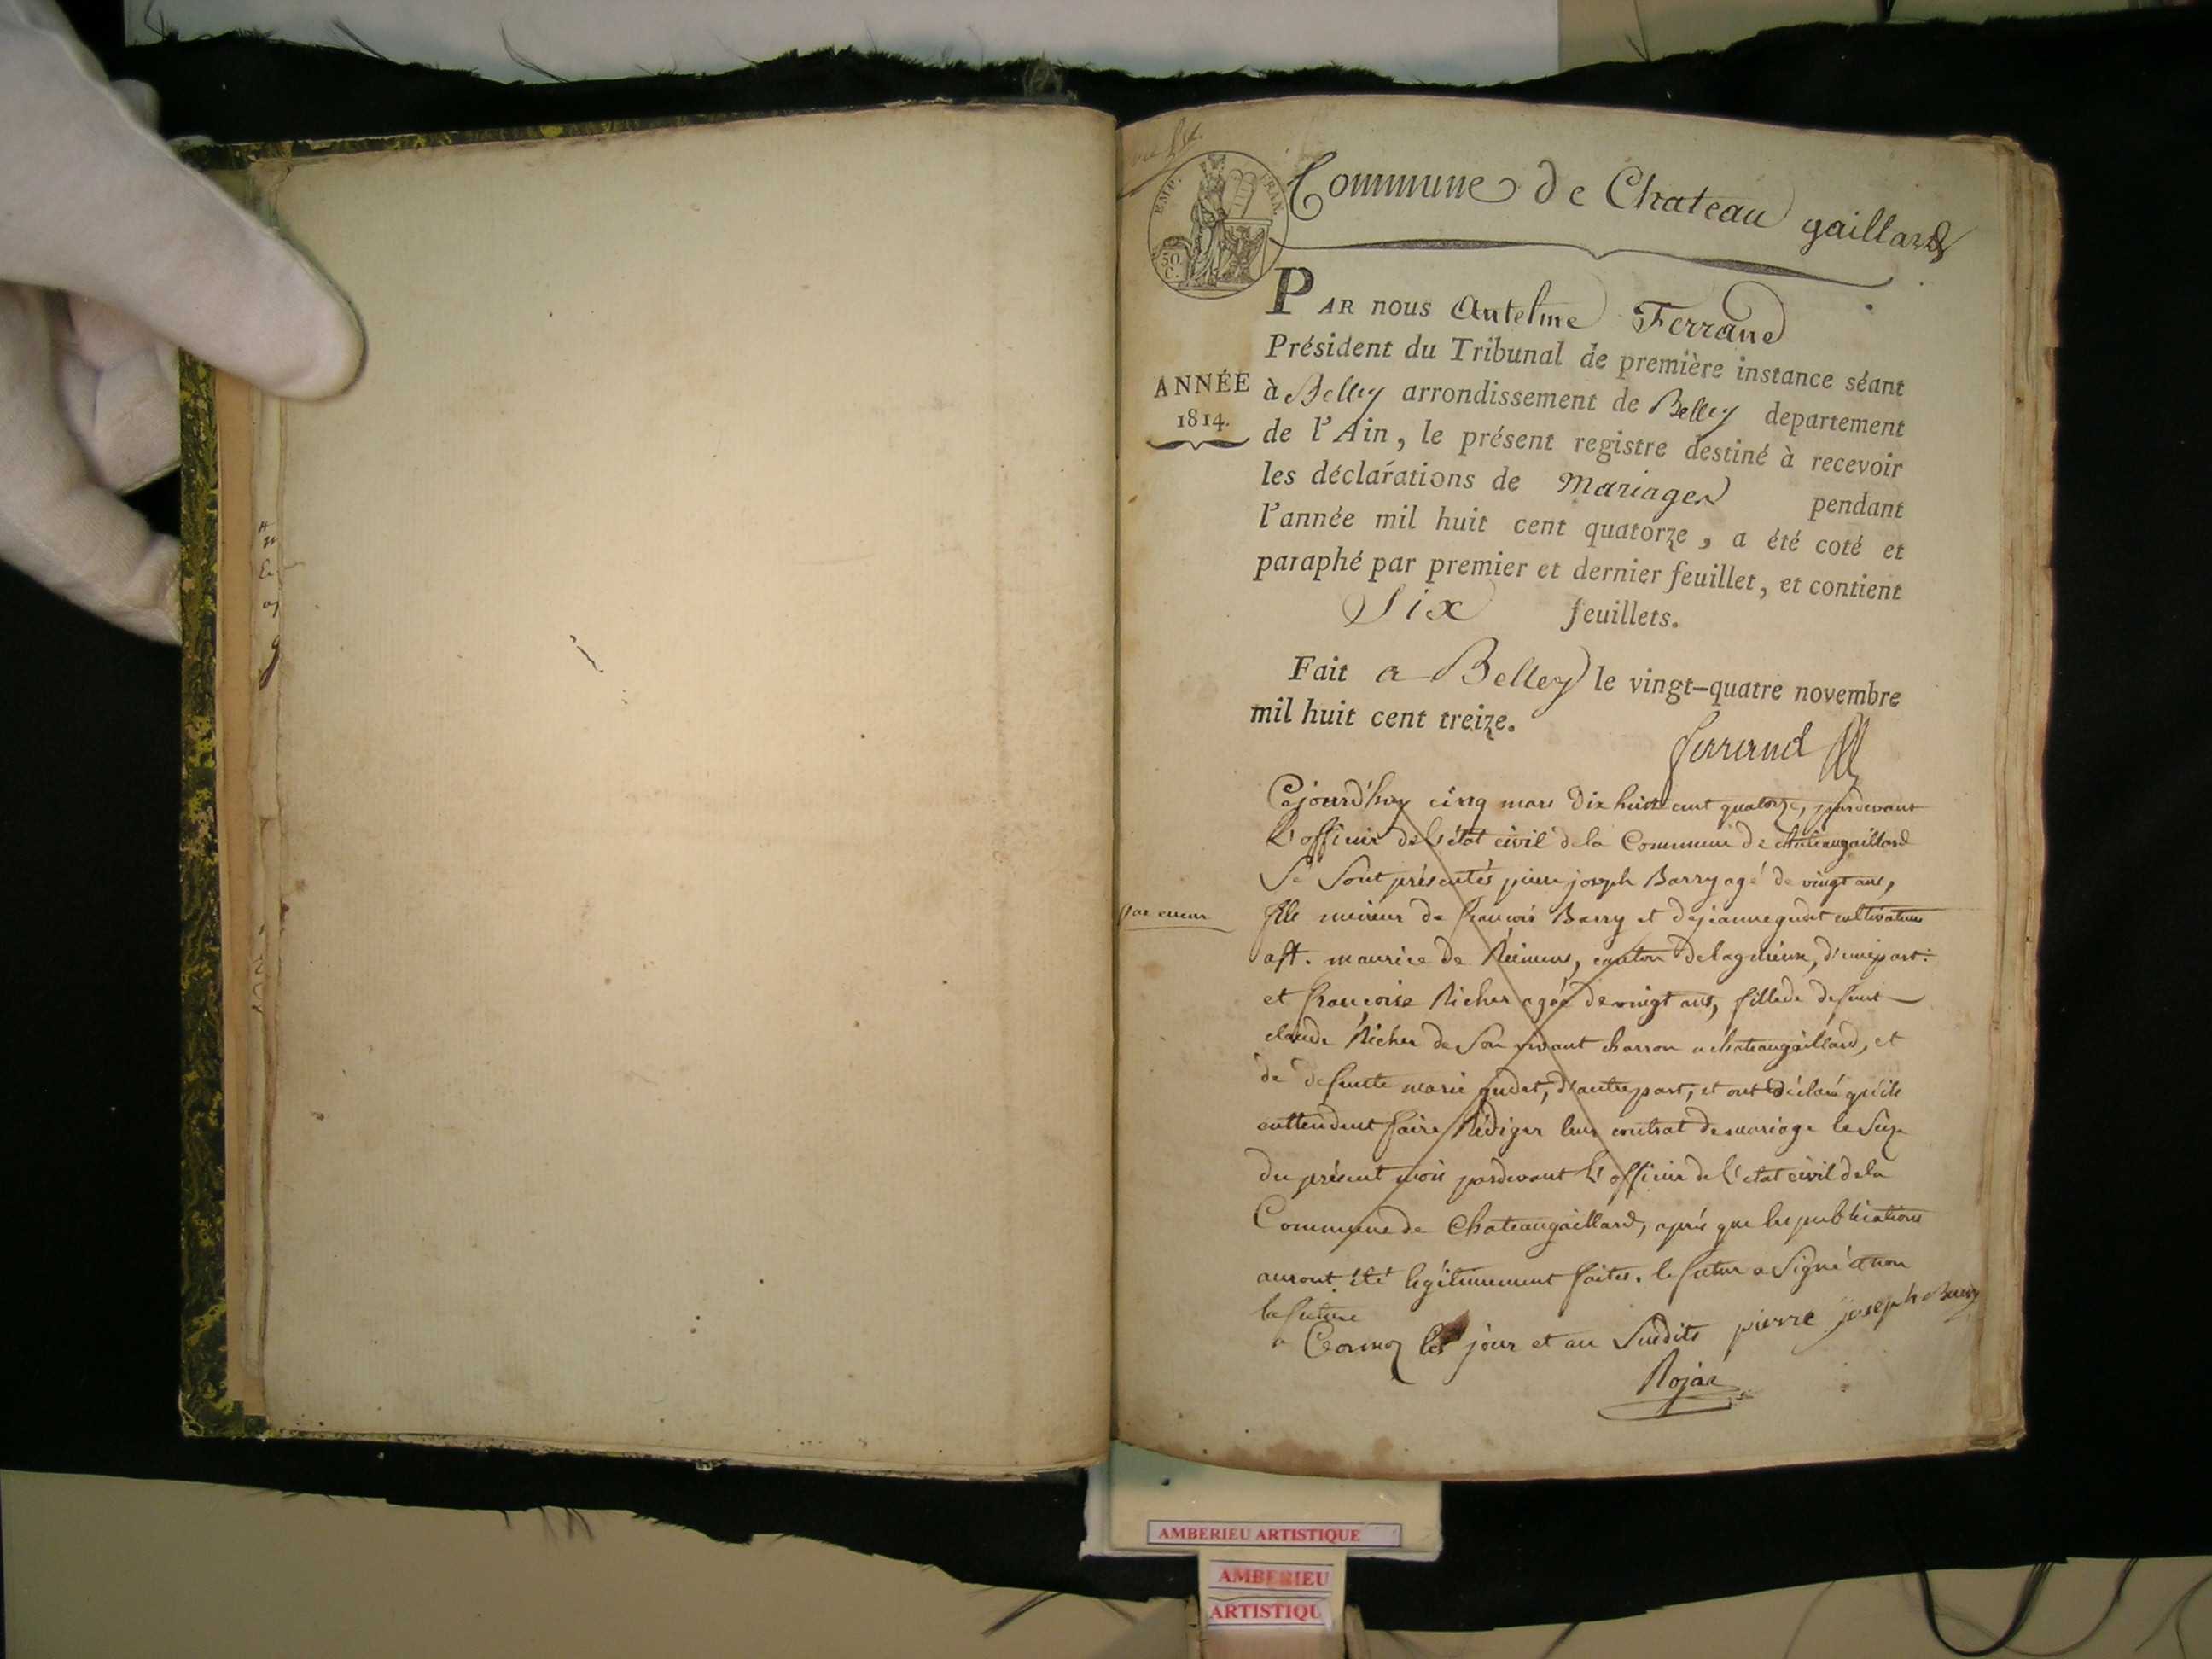 EMP. FRAN.
50
C.
Commune de Chateau gaillard
PAR nous Antelme Ferrand
Président du Tribunal de première instance séant
ANNÉE
1814.
à Belley arrondissement de Belley departement
de l'Ain, le présent registre destiné à recevoir
les déclarations de Mariages pendant
l'année mil huit cent quatorze, a été coté et
paraphé par premier et dernier feuillet, et contient
Six feuillets.
Fait a Belley le vingt-quatre novembre
mil huit cent treize.
ferrand
Cejourd'huy cinq mars dix huit cent quatorze, pardevant
L'officier de l'état civil de la Commune de chateaugaillard
Se Sont présentés pierre joseph Barry agé de vingt ans,
par erreur
fils mineur de françois Barry et de jeanne gudet cultivateurs
a st. maurice de Rémens, canton de lagnieux, d'une part:
et françoise Richer agée de vingt ans, fille de defunt
claude Richer de Son vivant charron a chateaugaillard, et
de defunte marie gudet, d'autre part, et ont déclaré qu'ils
enttendent faire Rédiger leur contrat de mariage le Seize
du présent mois pardevant L'officier de l'etat civil de la
Commune de Chateaugaillard, après que les publications
auront été légitimement faites. le futur a Signé et non
la future
a les jour et an Susdits pierre joseph Barry
Rojat
AMBERIEU ARTISTIQUE
AMBERIEU
ARTISTIQU